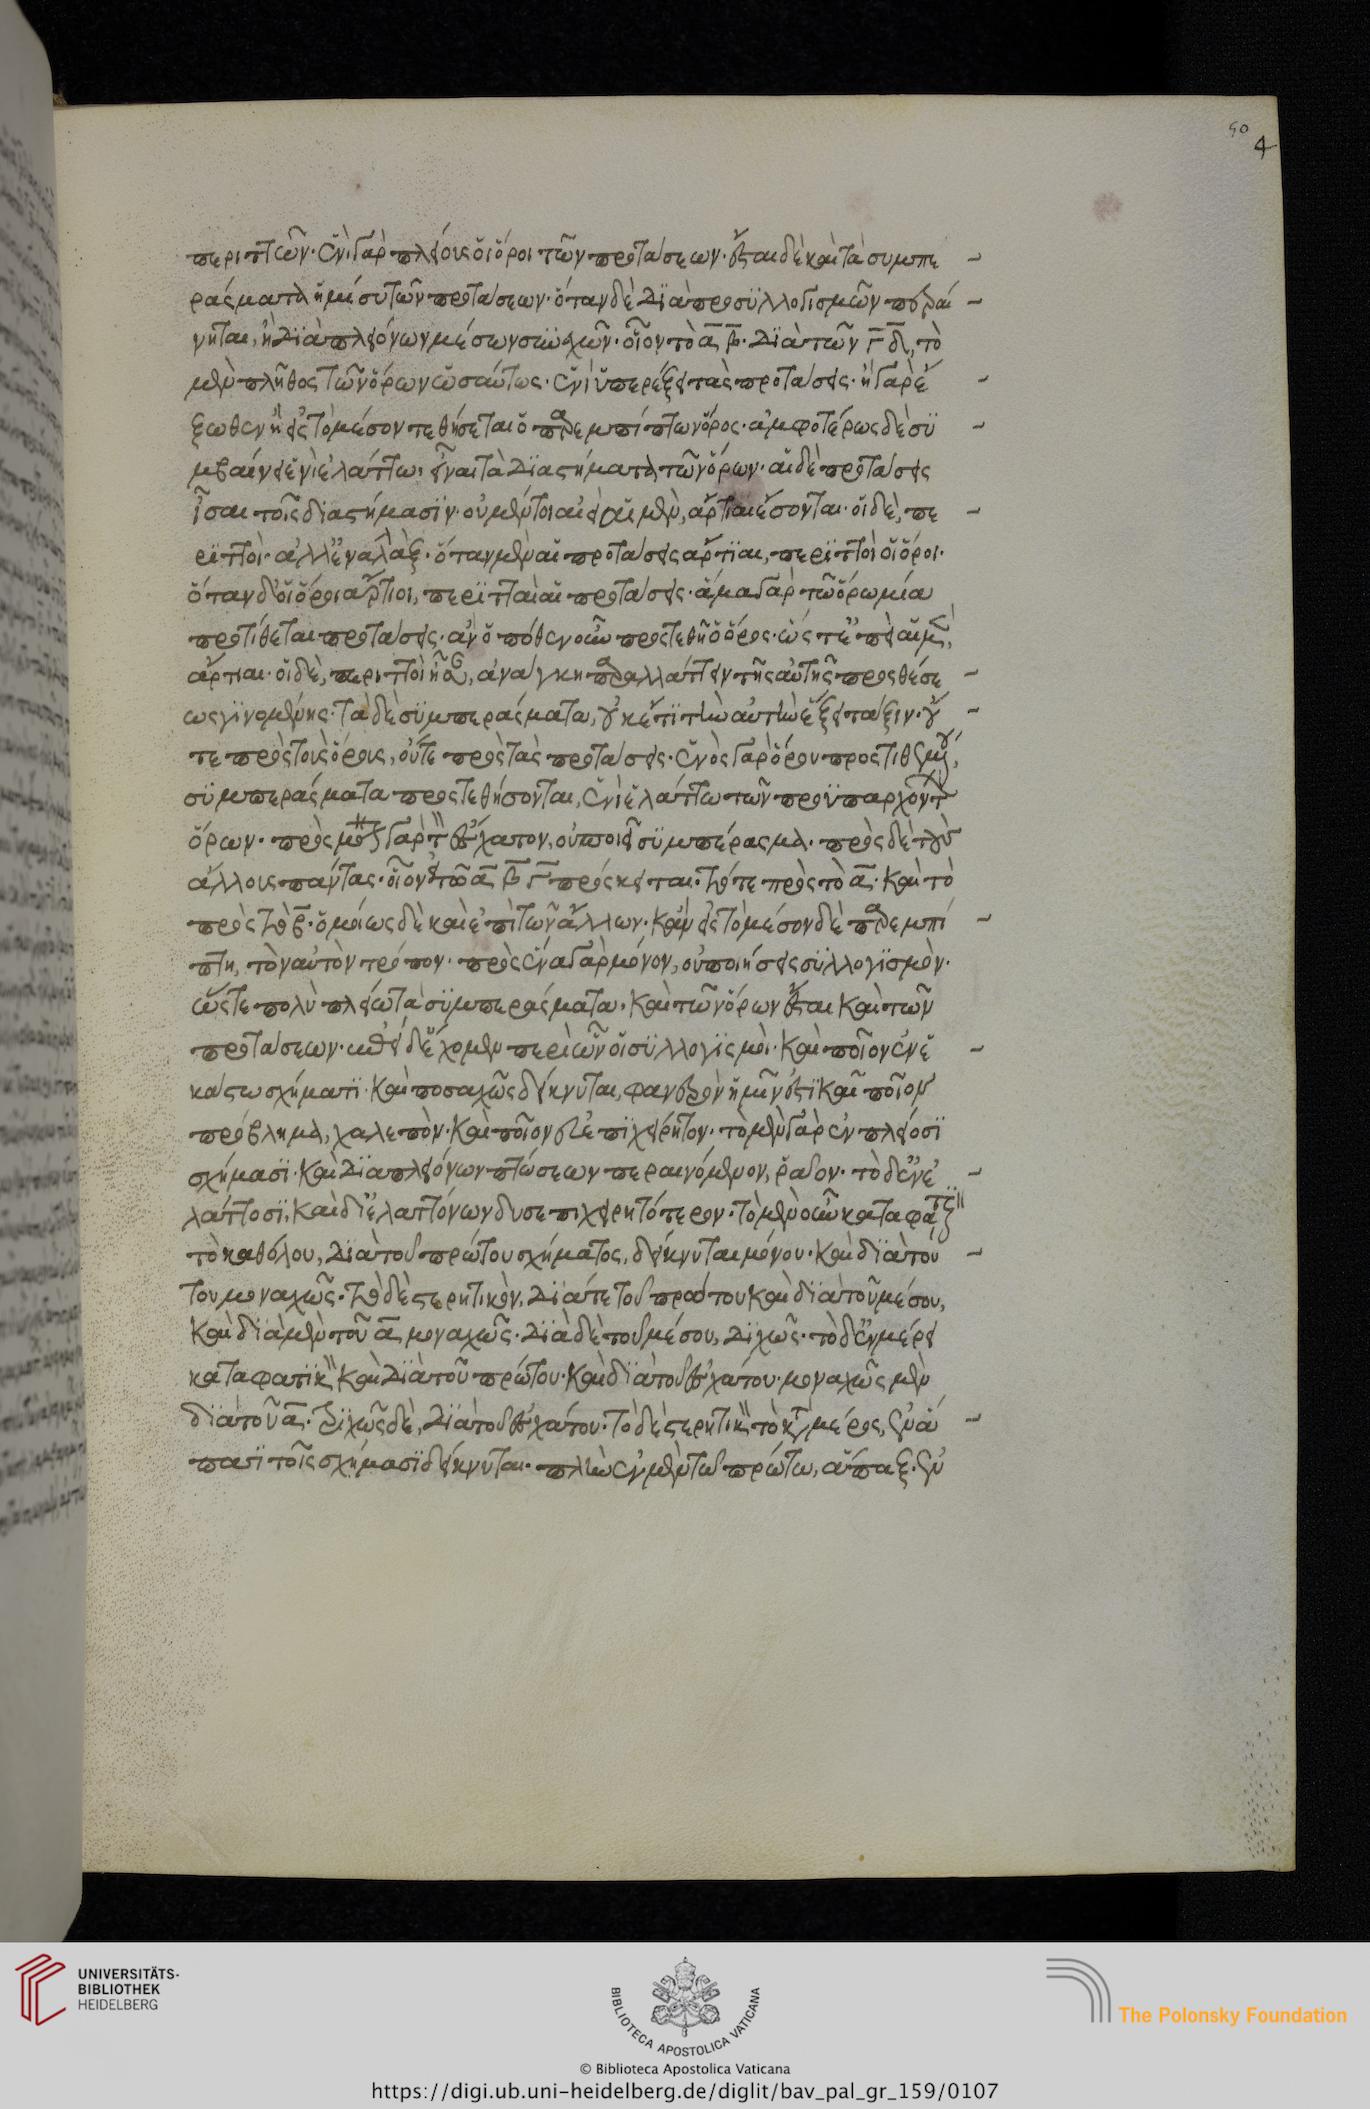 περιττῶν· ἑνὶ γὰρ πλείους οἱ ὅροι τῶν προτάσεων· ἔσται δὲ καὶ τὰ συμπε
ράσματα ἡμίση τῶν προτάσεων· ὅταν δὲ διὰ προσυλλογισμῶν περαί
νηται, ἢ διὰ πλειόνων μέσων συνεχῶν· οἷον τὸ α β· διὰ τῶν γ δ, τὸ
μὲν πλῆθος τῶν ὅρων ὡσαύτως· ἑνὶ ὑπερέξει τὰς προτάσεις· ἢ γὰρ ἔ
ξωθεν ἢ εἰς τὸ μέσον τεθήσεται ὁ παρεμπίπτων ὅρος· ἀμφοτέρως δὲ συ
μβαίνει ἑνὶ ἐλάττω εἶναι τὰ διαστήματα τῶν ὅρων· αἱ δὲ προτάσεις
ἴσαι τοῖς διαστήμασιν· οὐ μέντοι αἰεὶ αἱ μὲν, ἄρτιαι ἔσονται· οἱ δὲ, πε
ριττοί· ἀλλ' ἐναλλάξ· ὅταν μὲν αἱ προτάσεις ἄρτιαι, περιττοὶ οἱ ὅροι·
ὅταν δ' οἱ ὅροι ἄρτιοι, περιτταὶ αἱ προτάσεις· ἅμα γὰρ τῷ ὅρω μία
προστίθεται προτάσεις· ἂν ὁπόθεν οὖν προστεθῇ ὁ ὅρος· ὥστ' ἐπεὶ αἱ μὲν,
ἄρτιαι· οἱ δὲ, περιττοὶ ἦσαν, ἀνάγκη παραλλάττειν τῆς αὐτῆς προσθέσε
ως γινομένης· τὰ δὲ συμπεράσματα, οὐκέτι τὴν αὐτὴν ἕξει τάξιν· οὔ
τε πρὸς τοὺς ὅρους, οὔτε πρὸς τὰς προτάσεις· ἑνὸς γὰρ ὅρου προστιθεμένου,
συμπεράσματα προστεθήσονται, ἑνὶ ἐλάττω τῶν προϋπαρχόντων
ὅρων· πρὸς μόνον γὰρ τὸν ἔσχατον, οὐ ποιεῖ συμπέρασμα· πρὸς δὲ τοὺς
ἄλλους πάντας· οἷον εἰ τῷ α β γ πρόσκειται· τό τε πρὸς τὸ α· καὶ τὸ
πρὸς τὸ β· ὁμοίως δὲ καὶ ἐπὶ τῶν ἄλλων· κἂν εἰς τὸ μέσον δὲ παρεμπί
πτη, τὸν αὐτὸν τρόπον· πρὸς ἕνα γὰρ μόνον, οὐ ποιήσεις συλλογισμόν·
ὥστε πολὺ πλείω τὰ συμπεράσματα· καὶ τῶν ὅρων ἔσται καὶ τῶν
προτάσεων· ἐπεὶ δ' ἔχομεν περὶ ὧν οἱ συλλογισμοὶ· καὶ ποῖον ἐν ἑ
κάστω σχήματι· καὶ ποσαχῶς δείκνυται, φανερὸν ἡμῖν ἐστὶ καὶ ποῖον
πρόβλημα, χαλεπὸν· καὶ ποῖον εὐεπιχείρητον· τὸ μὲν γὰρ ἐν πλείοσι
σχήμασι· καὶ διὰ πλειόνων πτώσεων περαινόμενον, ῥᾶδον· τὸ δ' ἐν ἐ
λάττοσι, καὶ δι' ἐλαττόνων δυσεπιχειρητότερον· τὸ μὲν οὖν καταφατικὸν
τὸ καθόλου, διὰ τοῦ πρώτου σχήματος, δείκνυται μόνου· καὶ διὰ τού
του μοναχῶς· τὸ δὲ στερητικὸν, διά τε τοῦ πρώτου καὶ διὰ τοῦ μέσου,
καὶ διὰ μὲν τοῦ α μοναχῶς· διὰ δὲ τοῦ μέσου, διχῶς· τὸ δ' ἐν μέρει
καταφατικὸν καὶ διὰ τοῦ πρώτου· καὶ διὰ τοῦ ἐσχάτου· μοναχῶς μὲν
διὰ τοῦ α· τριχῶς δὲ, διὰ τοῦ ἐσχάτου· τὸ δὲ στερητικὸν τὸ κατὰ μέρος, ἐν ἅ
πασι τοῖς σχήμασι δείκνυται· πλὴν ἐν μὲν τῶ πρώτω, ἅπαξ· ἐν
50
4
UNIVERSITÄTS-
BIBLIOTHEK
HEIDELBERG
BIBLIOTECA APOSTOLICA VATICANA
The Polonsky Foundation
© Biblioteca Apostolica Vaticana
https://digi.ub.uni-heidelberg.de/diglit/bav_pal_gr_159/0107